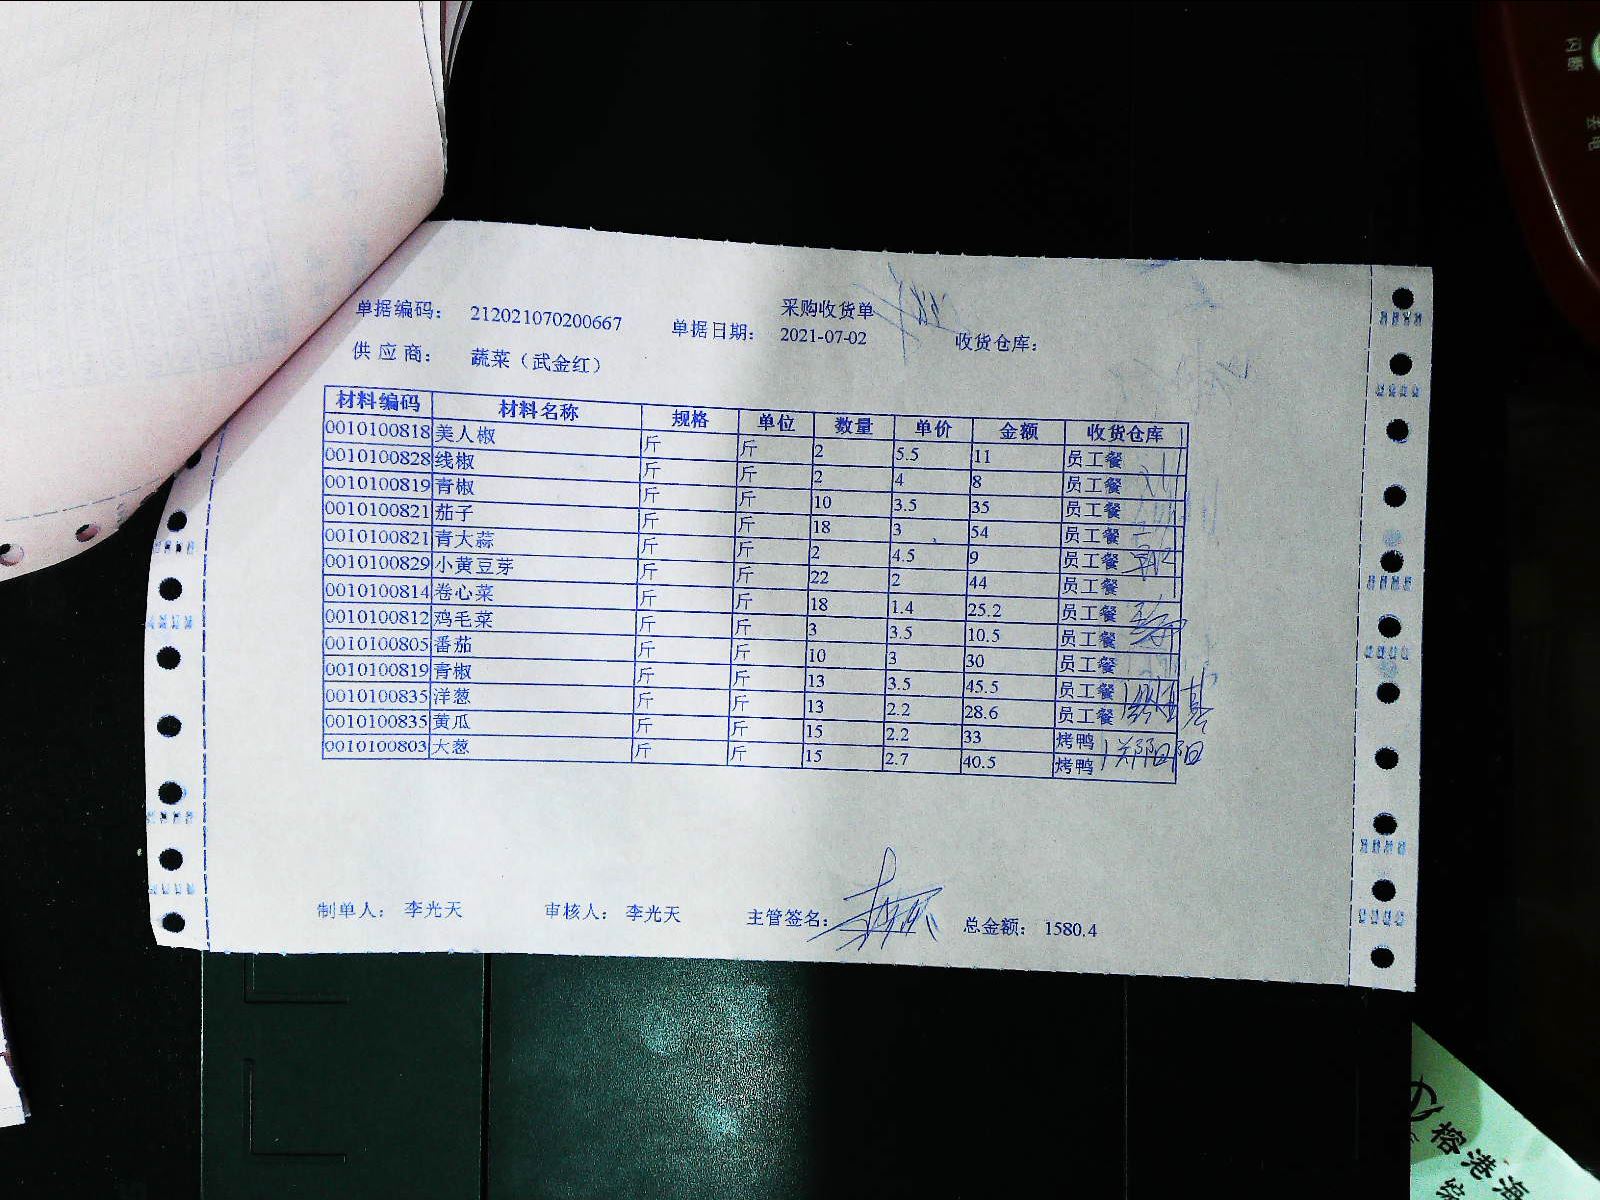 采购收货单
单据编码： 212021070200667 单据日期： 2021-07-02 收货仓库：
供 应 商： 蔬菜（武金红）
材料编码 材料名称 规格 单位 数量 单价 金额 收货仓库
0010100818 美人椒 斤 斤 2 5.5 11 员工餐
0010100828 线椒 斤 斤 2 4 8 员工餐
0010100819 青椒 斤 斤 10 3.5 35 员工餐
0010100821 茄子 斤 斤 18 3 54 员工餐
0010100821 青大蒜 斤 斤 2 4.5 9 员工餐
0010100829 小黄豆芽 斤 斤 22 2 44 员工餐
0010100814 卷心菜 斤 斤 18 1.4 25.2 员工餐
0010100812 鸡毛菜 斤 斤 3 3.5 10.5 员工餐
0010100805 番茄 斤 斤 10 3 30 员工餐
0010100819 青椒 斤 斤 13 3.5 45.5 员工餐
0010100835 洋葱 斤 斤 13 2.2 28.6 员工餐
0010100835 黄瓜 斤 斤 15 2.2 33 烤鸭
0010100803 大葱 斤 斤 15 2.7 40.5 烤鸭
制单人： 李光天 审核人： 李光天 主管签名： 总金额： 1580.4
榕港海